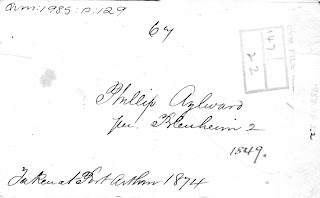 QVM:1985:P:129
67
Phillip Aylward
per. Blenheim 2
1849.
Taken at Port Arthur 1874